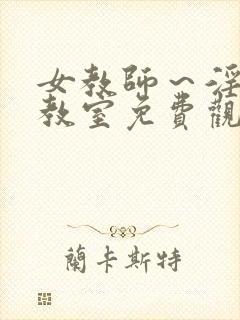 女教师一淫
教室免費觀
蘭卡斯特